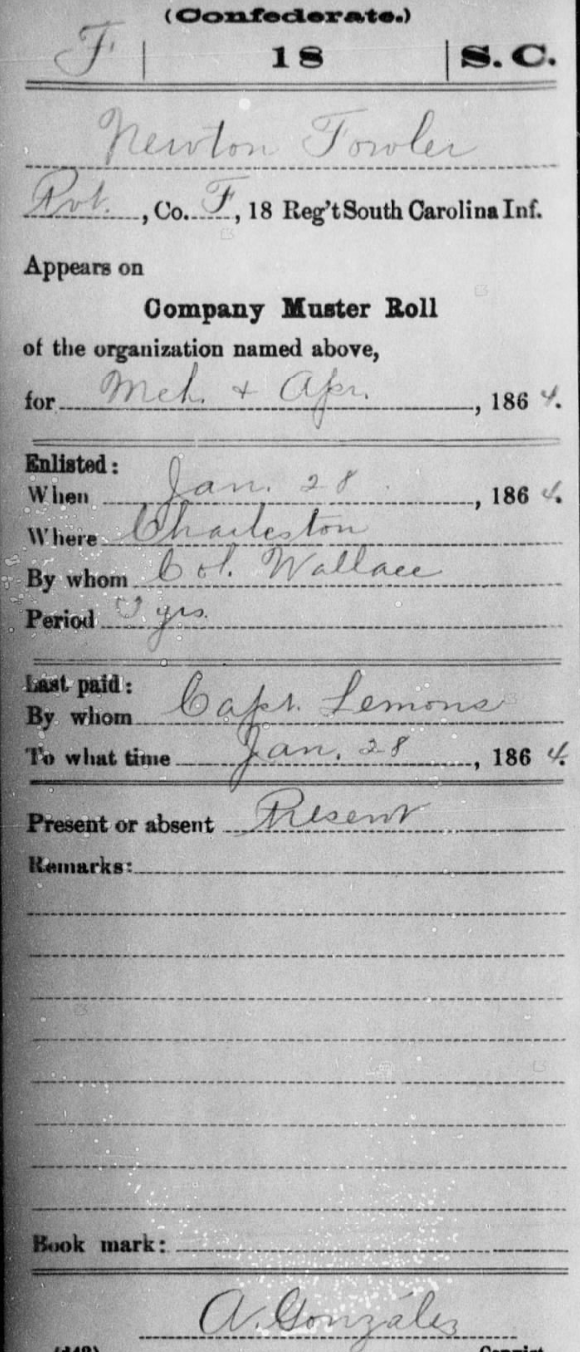 (Confederate.)
F | 18 | S. C.
Newton Fowler
Pvt., Co. F, 18 Reg't South Carolina Inf.
Appears on
Company Muster Roll
of the organization named above,
for Mch. + Apr., 1864.
Enlisted:
When Jan. 28., 1864.
Where Charleston
By whom Col. Wallace
Period 3 yrs.
Last paid:
By whom Capt. Lemons
To what time Jan. 28, 1864.
Present or absent Present
Remarks:
Book mark:
A. González
(642) Copyist.